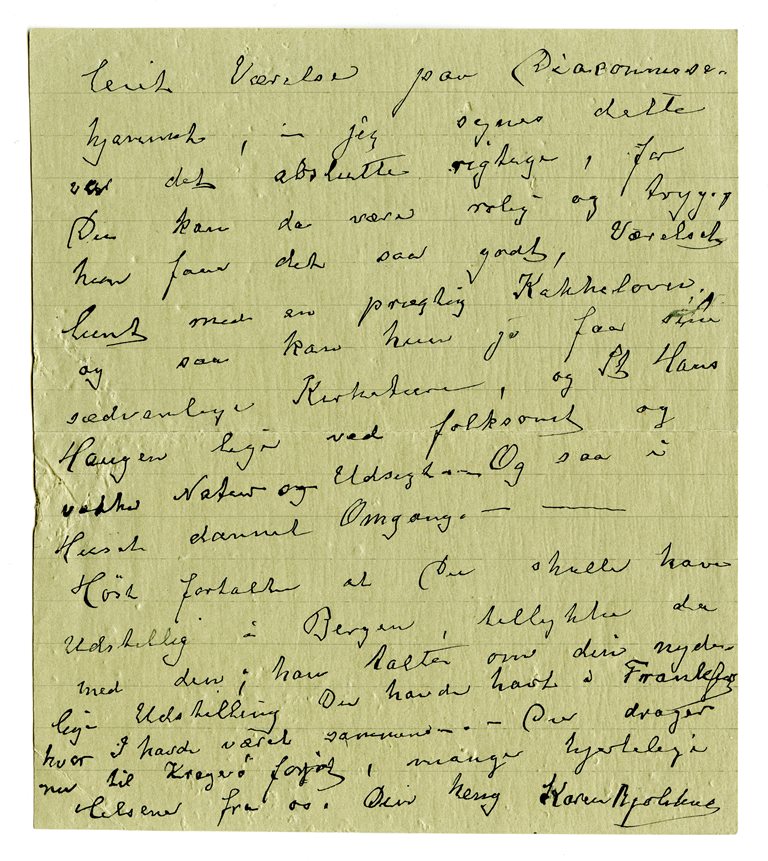 leiet Værelse paa Diaconnisse-
hjemmet, – jeg synes dette
var det absolutte rigtige, for
Du kan da være rolig og tryg,
hun faar det saa godt, Værelset
lunt med en prægtig Kakkelovn,
og saa kan hun jo faa sine
sædvanlige Kirketure, og St Hans
Haugen lige ved folksomt og
vakker Natur og Udsigt – Og saa i
Huset dannet Omgang. – —
Høst fortalte at Du skulle have
Udstillig i Bergen, tillykke da
med den; han talte om din nyde-
lige Udstilling Du havde havt i Frankfurt
hvor I havde været sammen –. – Du drager
nu til Kragerø forjøt, mange hjertelige
Hilsener fra os. Din heng Karen Bjølstad